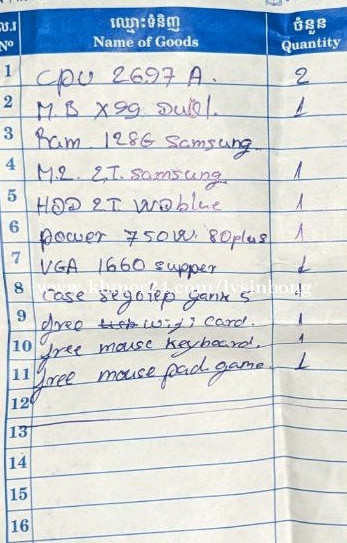 ល.រ ឈ្មោះទំនិញ ចំនួន
Nº Name of Goods Quantity
1 CPU 2697 A. 2
2 M.B X99 Dual. 1
3 Ram 128G Samsung
4 M.2. 2T. Samsung 1
5 HDD 2T WD blue 1
6 power 750W. 80plus 1
7 VGA 1660 supper 1
www.khmer24.com/lysinhong
8 Case segotep gank 5
9 free wifi card. 1
10 free mouse keyboard. 1
11 free mouse pad game. 1
12
13
14
15
16